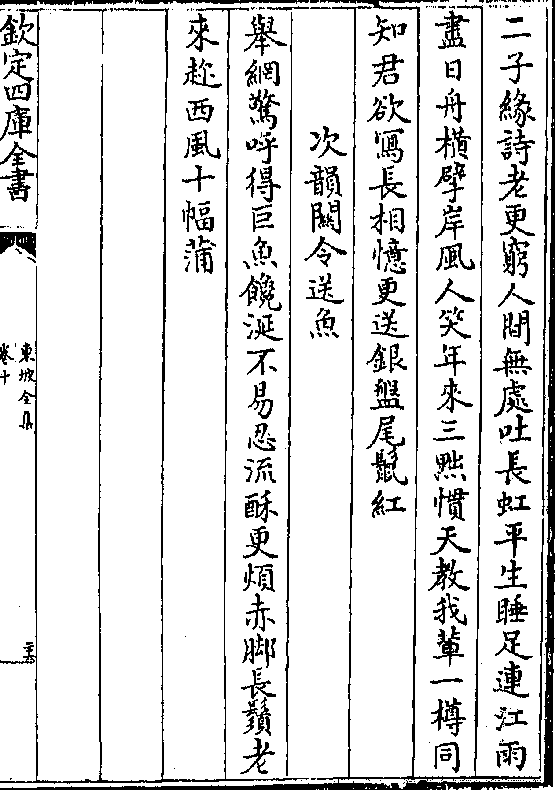 二子緣詩老更窮人間無處吐長虹平生睡足連江雨
盡日舟橫擘岸風人笑年來三黜慣天教我輩一樽同
知君欲寫長相憶更送銀盤尾鬛紅
次韻關令送魚
舉網驚呼得巨魚饞涎不易忍流酥更煩赤脚長鬚老
來趂西風十幅蒲
欽定四庫全書
東坡全集
卷十